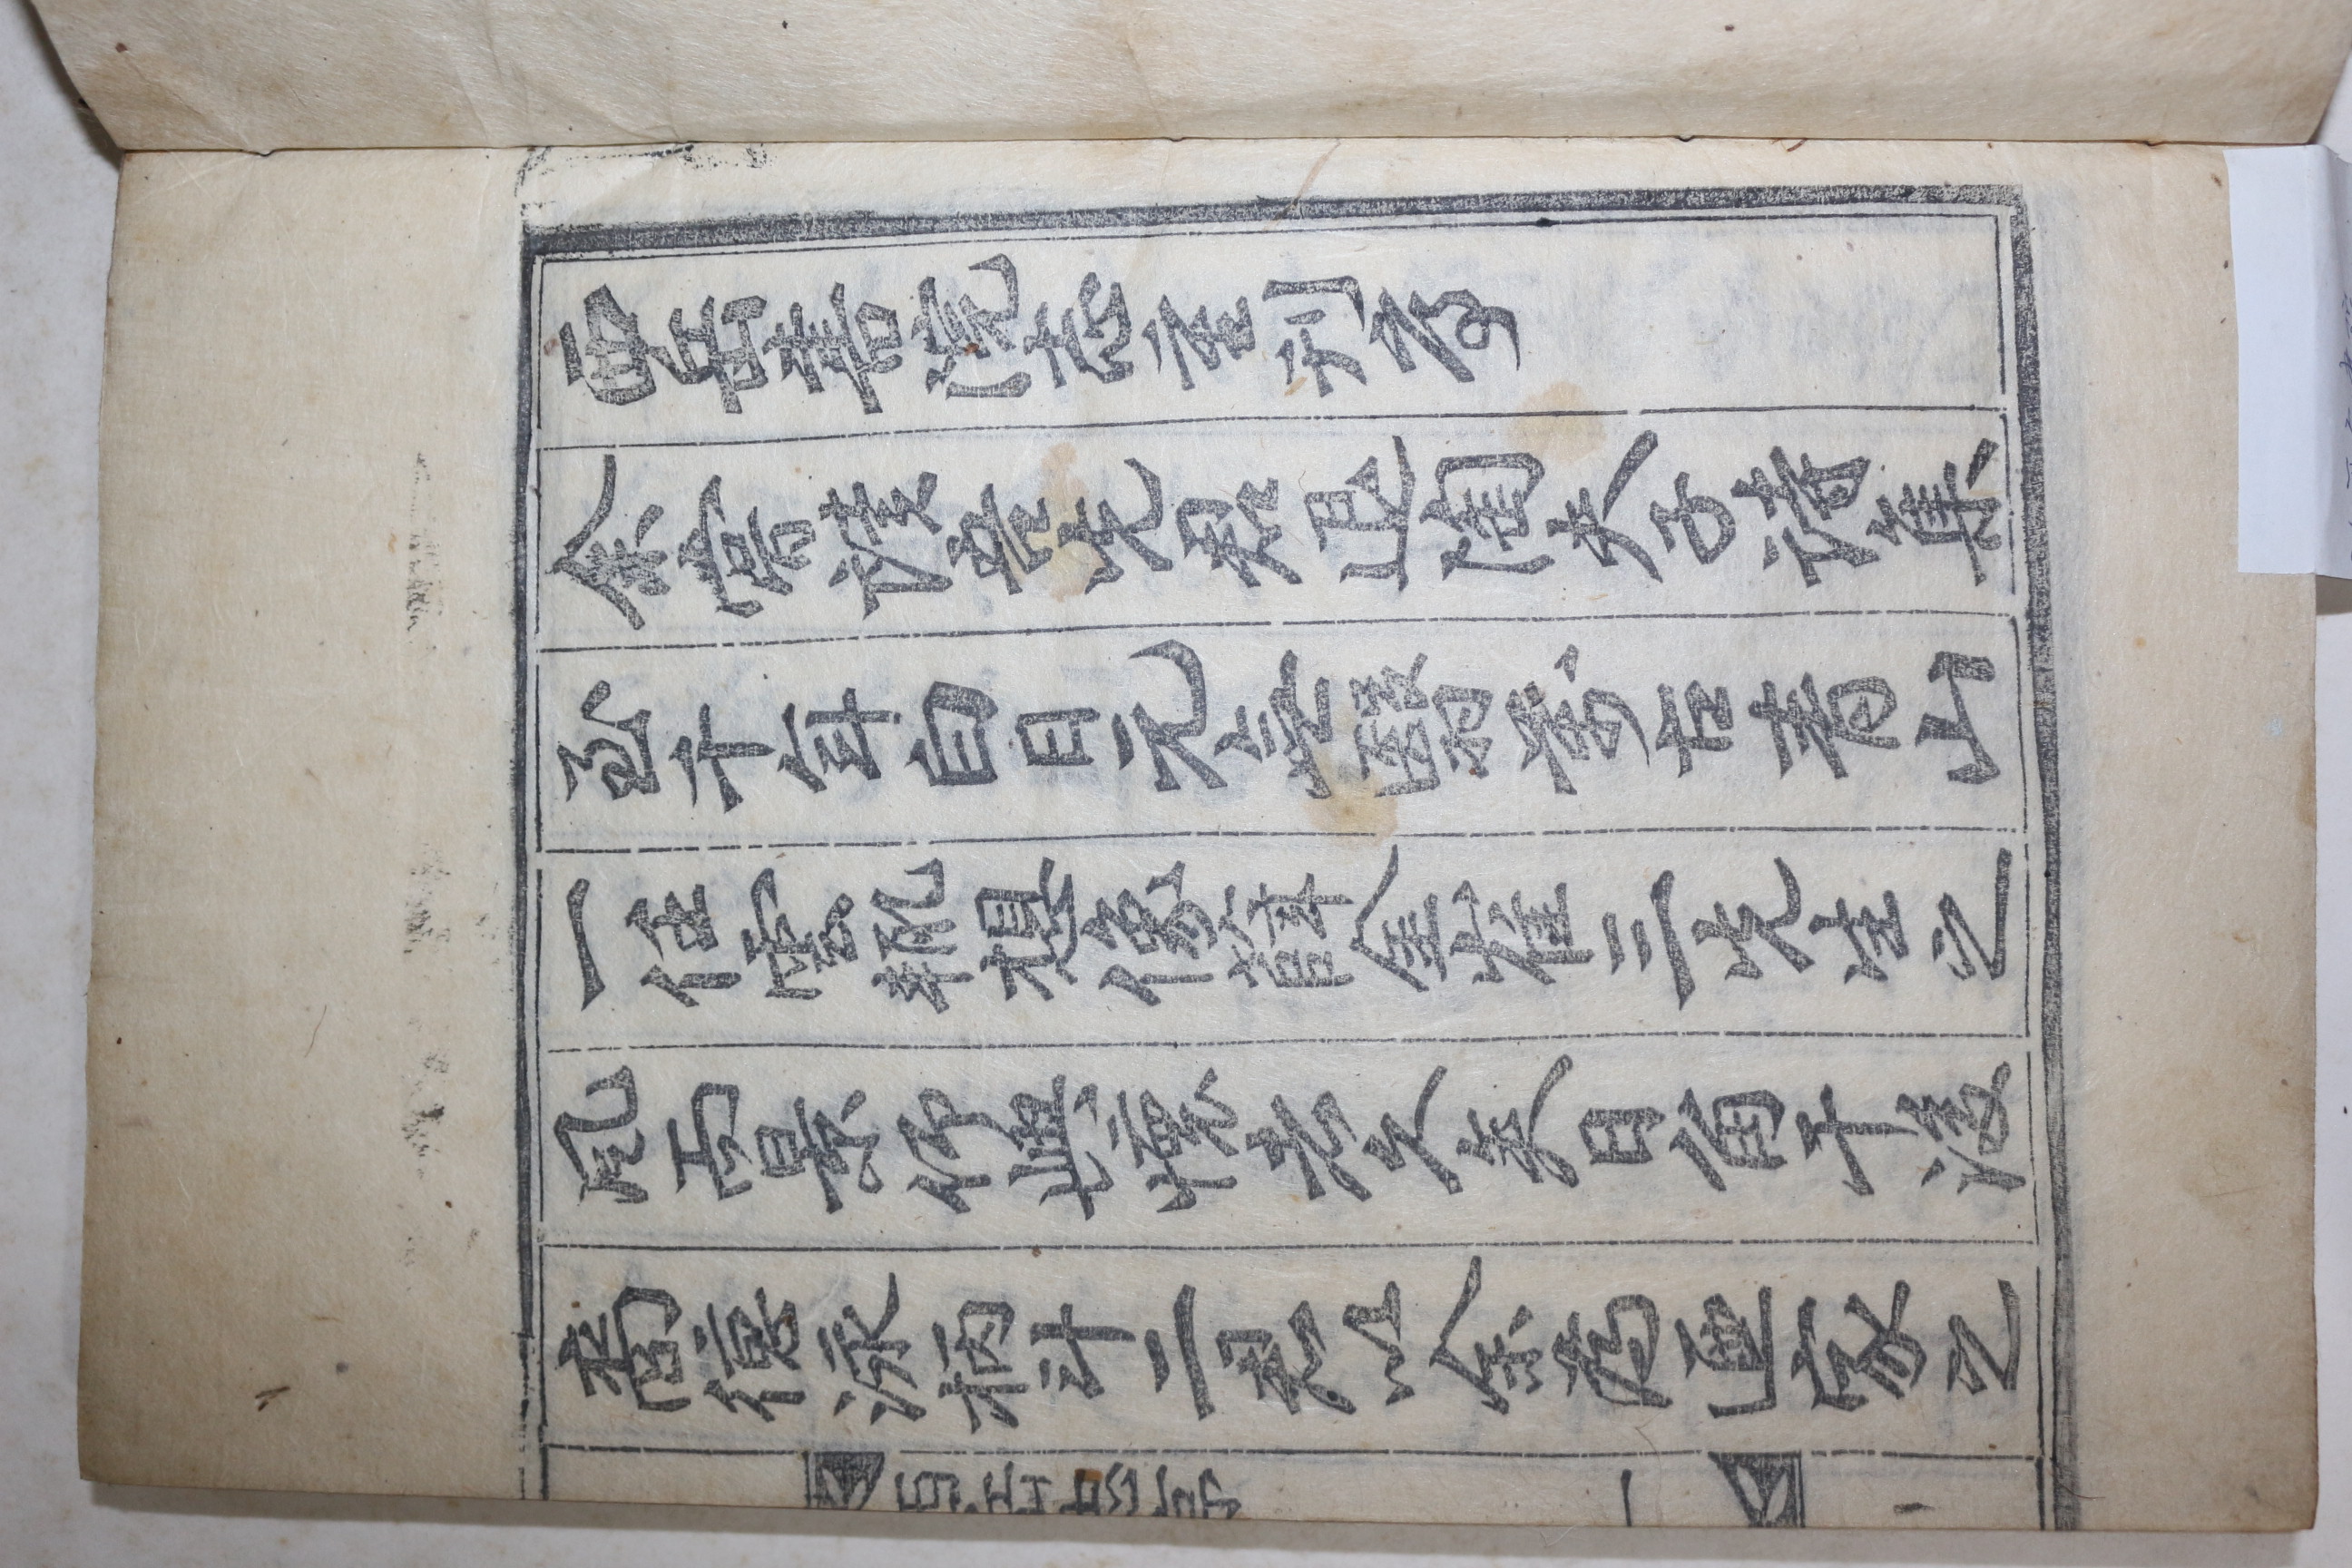 西岳書院志重刊序
余嘗讀吾先君退陶夫子詩集
至千年白日元無翳萬古青山
一任雲輒想像薛金崔三先生之
風而景仰興懷者久矣日角干後
裔德泳柄斗二君以余爲通家之
一